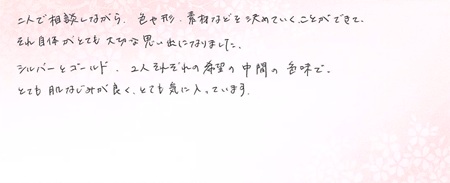 二人で相談しながら、色や形、素材などを決めていくことができて、
それ自体がとても大切な思い出になりました。
シルバーとゴールド、2人それぞれの希望の中間の色味で、
とても肌なじみが良く、とても気に入っています。